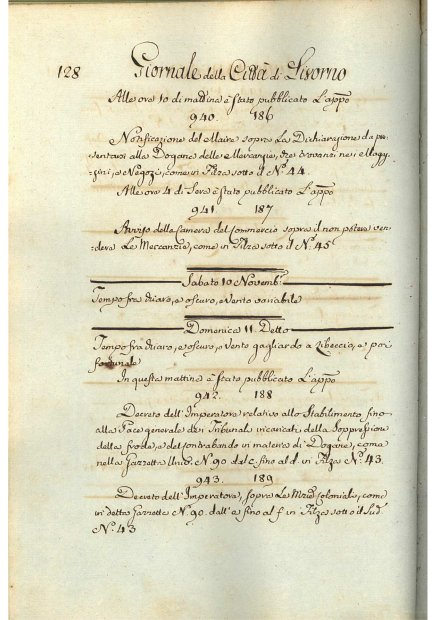 128 Giornale della Città di Livorno
Alle ore 10 di mattina è stato pubblicato L'appo
940. 186
Notificazione del Maire sopra La Dichiarazione da pre
sentarsi alla Dogana delle Mercanzie, che trovansi nei Magaz
zini, e Negozi, come in Filza sotto il N.º 44.
Alle ore 4 di Sera è stato pubblicato L'appo
941 187
Avviso della Camera del Commercio sopra il non potere ven
dere Le Mercanzie, come in Filza sotto il N.º 45
Sabato 10 Novemb.
Tempo fra chiaro, e oscuro, e Vento variabile
Domenica 11. Detto
Tempo fra chiaro, e oscuro, e Vento gagliardo a Libeccio, e poi
fortunale
In questa mattina è stato pubblicato L'appo
942. 188
Decreto dell'Imperatore relativo allo Stabilimento fino
alla Pace generale dei Tribunali incaricati della Soppressione
della frode, e del contrabando in materia di Dogane, come
nella Gazzetta Univ. N. 90 dal c. fino al d. in Filza N.º 43.
943. 189
Decreto dell'Imperatore, sopra Le Coloniali, come
in detta Gazzetta N. 90. dall'e fino al f in Filza sotto il Sud.
N.º 43